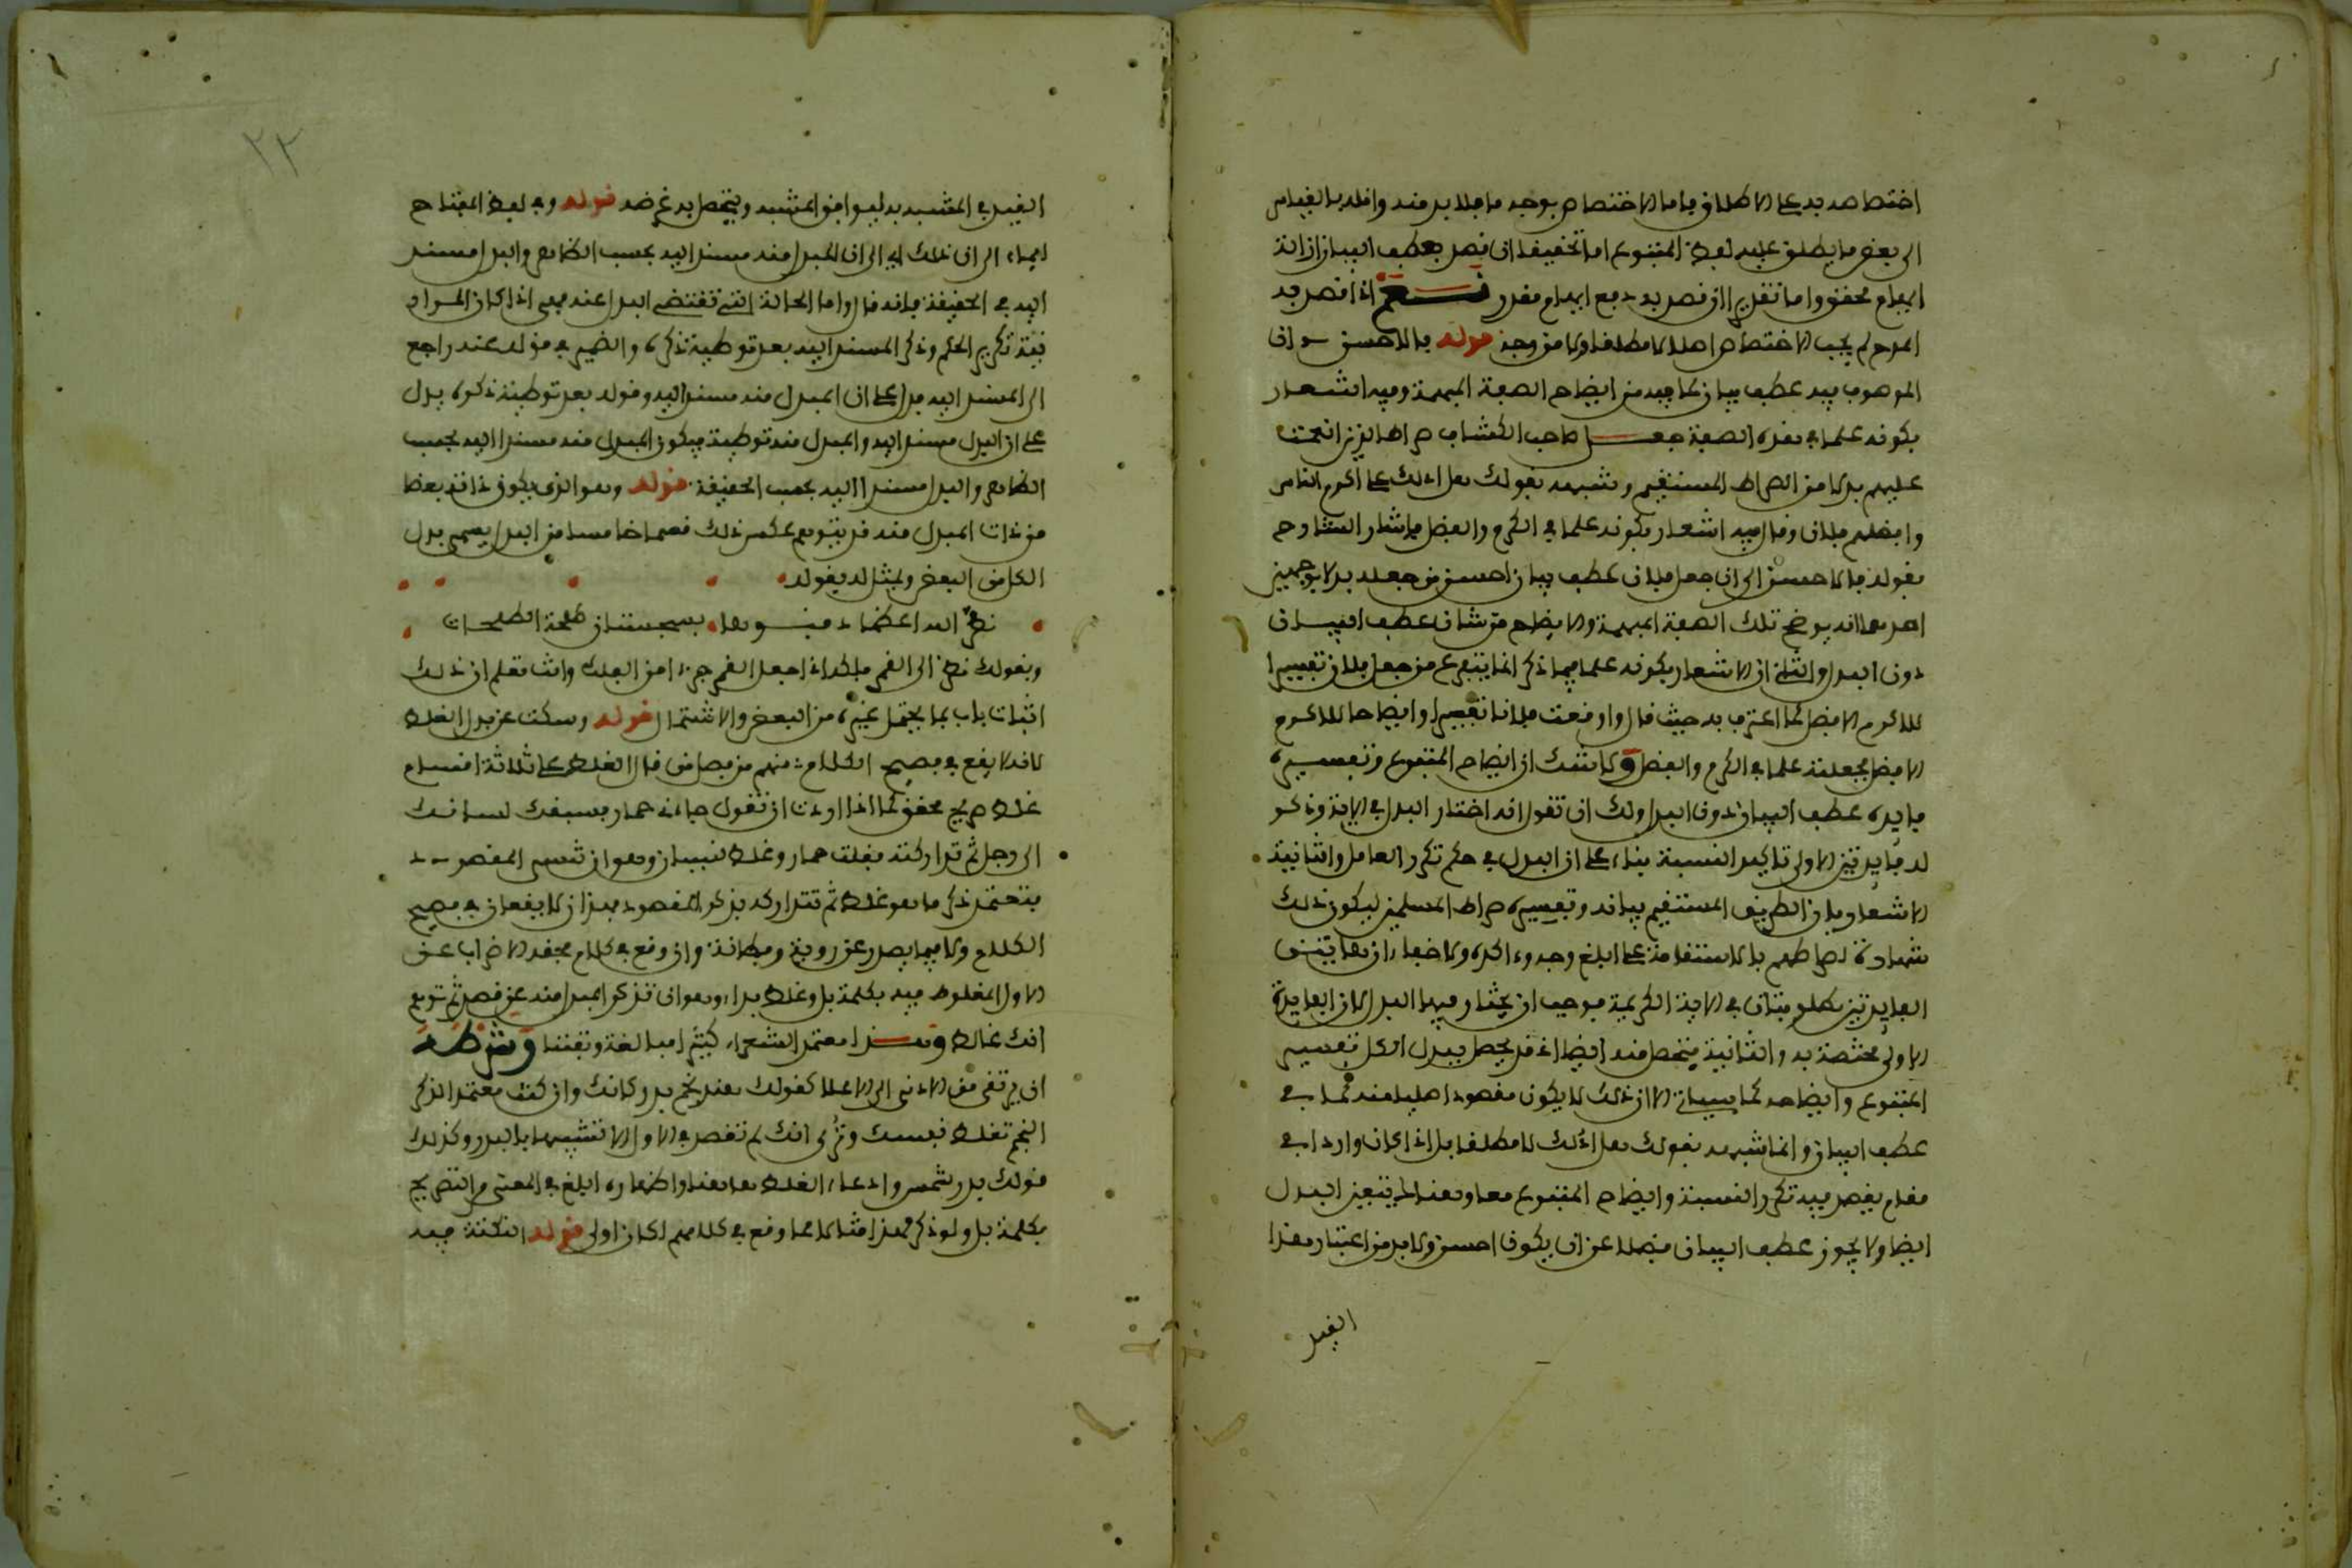 اختصاصه به على الاطلاق واما الاختصاص بوجه ما فلا بد منه واقله بالقياس
الى بعض ما يطلق عليه لفظ المتبوع اما تحقيقا ان قصد بعطف البيان ازالة
ابهام محقق واما تقديرا ان قصد به دفع ابهام مقدر نعم اذا قصد به
المدح لم يجب الاختصاص اصلا لا مطلقا ولا من وجه قوله فالاحسن ان
الموصوف فيه عطف بيان لما فيه من ايضاح الصفة المبهمة وفيه اشعار
بكونه علما في هذه الصفة جعل صاحب الكشاف صراط الذين انعمت
عليهم بدلا من الصراط المستقيم وشبهه بقولك هل ادلك على اكرم الناس
وافضلهم فلان وقال فيه اشعار بكونه علما في الكرم والفضل فاشار الشارح
بقوله فالاحسن الى ان جعل فلان عطف بيان احسن من جعله بدلا بوجهين
احدهما انه يوضح تلك الصفة المبهمة والايضاح من شان عطف البيان
دون البدل والثاني ان الاشعار بكونه علما فيما ذكر انما يتفرع من جعل فلان تفسيرا
للاكرم الافضل كما اعترف به حيث قال واوقعت فلانا تفسيرا وايضاحا للاكرم
الافضل فجعلته علما في الكرم والفضل ولا شك ان ايضاح المتبوع وتفسيره
فايدة عطف البيان دون البدل ولك ان تقول انه اختار البدل في الاية وذكر
له فايدتين الاولى تاكيد النسبة بناء على ان البدل في حكم تكرر العامل والثانية
الاشعار بان الطريق المستقيم بيانه وتفسيره صراط المسلمين ليكون ذلك
شهادة لصراطهم بالاستقامة على ابلغ وجه واكده ولا خفاء ان هاتين
الفايدتين مطلوبتان في الاية الكريمة فوجب ان يختار فيها البدل لان الفايدة
الاولى مختصة به والثانية تتحصل منه ايضا اذ قد يحصل ببدل الكل تفسير
المتبوع وايضاحه كما سيأتي الا ان ذلك لا يكون مقصودا اصليا منه كما في
عطف البيان وانما شبهه بقولك هل ادلك لا مطلقا بل اذا كان واردا في
مقام يقصد فيه تكرر النسبة وايضاح المتبوع معا وهناك يتعين البدل
ايضا ولا يجوز عطف البيان فضلا عن ان يكون احسن ولا بد من اعتبار هذا
القيد
٢٢
القيد في المشبه به ليوافق المشبه ويتحصل به غرضه قوله وفي لفظ المفتاح
ايماء الى ان ذلك اي الى ان المبدل منه مسند اليه بحسب الظاهر والبدل مسند
اليه في الحقيقة فانه قال واما الحالة التي تقتضي البدل عنه فهي اذا كان المراد
نية تكرير الحكم وذكر المسند اليه بعد توطئة ذكره والضمير في قوله عنه راجع
الى المسند اليه فدل على ان المبدل منه مسند اليه وقوله بعد توطئة ذكره يدل
على ان البدل مسند اليه والمبدل منه توطئة فيكون المبدل منه مسندا اليه بحسب
الظاهر والبدل مسندا اليه بحسب الحقيقة قوله وهو الذي يكون ذاته بعضا
من ذات المبدل منه قد يتوهم عكس ذلك قسما خامسا من البدل يسمى بدل
الكل من البعض ويمثل له بقوله
نضر الله اعظما دفنوها بسجستان طلحة الطلحات
وبقولك نظرت الى القمر فلكه اذا جعل القمر جزءا من الفلك وانت تعلم ان ذلك
اثبات باب بما يحتمل غيره من البعض والاشتمال قوله وسكت عن بدل الغلط
لانه لا يقع في فصيح الكلام منهم من فصل قال الغلط على ثلاثة اقسام
غلط صريح محقق كما اذا اردت ان تقول جاءني حمار فسبقك لسانك
الى رجل ثم تداركته فقلت حمار وغلط نسيان وهو ان تنسى المقصود
فتعتمد ذكر ما هو غلط ثم تتداركه بذكر المقصود فهذان لا يقعان في فصيح
الكلام ولا فيما يصدر عن روية وفطانة وان وقع في كلام فحقه الاضراب عن
الاول المغلوط فيه بكلمة بل وغلط بداء وهو ان تذكر المبدل منه عن قصد ثم توهم
انك غالط وهذا معتمد الشعراء كثيرا مبالغة وتفننا وشرطه
ان يرتقى من الادنى الى الاعلا كقولك هند نجم بدر كانك وان كنت معتمدا لذكر
النجم تغلط نفسك وترى انك لم تقصد في الاول الا تشبيهها بالبدر وكذلك
قولك بدر شمس وادعاء الغلط هاهنا واظهاره ابلغ في المعنى من التصريح
بكلمة بل ولو ذكر لهذا مثالا مما وقع في كلامهم لكان اولى قوله النكتة فيه